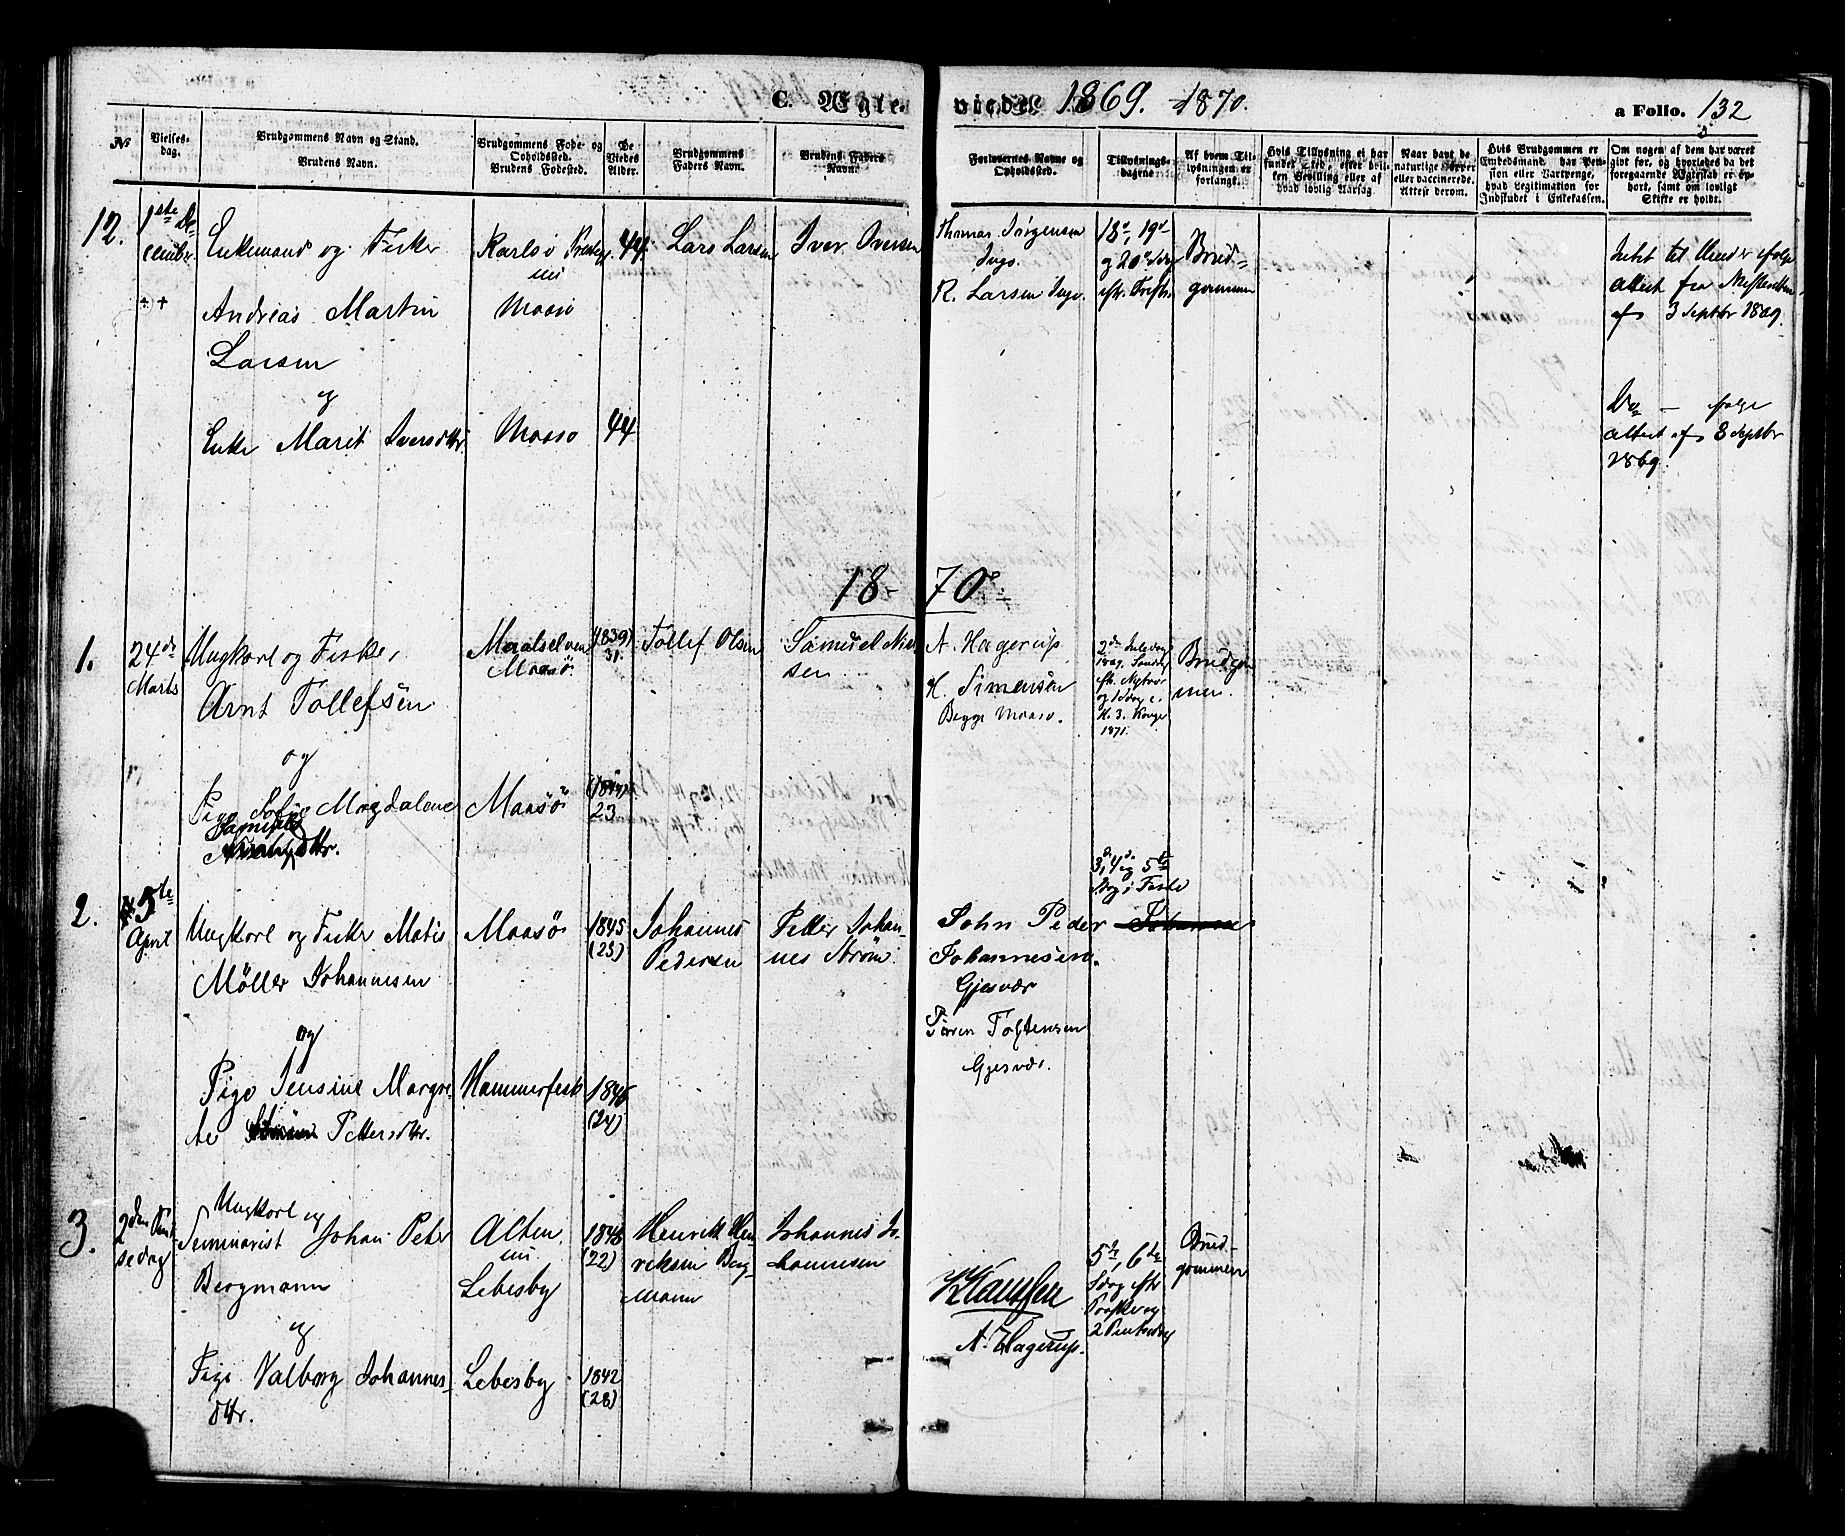 C. Ægte- viede. 1869. - 1870. a Folio. 132
No
Vielses-
dag.
Brudgommens Navn og Stand.
Brudens Navn.
Brudgommens Føde- og
Opholdssted.
Brudens Fødested.
De
Viedes
Alder.
Brudgommens
Faders Navn.
Brudens Faders
Navn.
Forlovernes Navne og
Opholdssted.
Tillysnings-
dagene
Af hvem Til-
lysningen er
forlangt.
Hvis Tillysning ei har
fundet Sted, efter hvil-
ken Bevilling eller af
hvad lovlig Aarsag.
Naar havt de
naturlige Kopper
eller vaccinerede.
Attest derom.
Hvis Brudgommen er
Embedsmand, har Pen-
sion eller Vartpenge,
hvad Legitimation for
Indskudet i Enkekassen.
Om nogen af dem har været
gift før, og hvorledes da det
foregaaende Ægteskab er op-
hørt, samt om lovligt
Skifte er holdt.
12.
1ste De-
cember
Enkemand og Fisker
Andreas Martin
Larsen
og
Enke Marit Iversdtr.
Karlsø Præstegj.
nu
Maasø
Maasø
44
44
Lars Larsen
Iver Iversen
Thomas Jørgensen
Ingø.
R. Larsen Ingø.
18de, 19de
og 20de Sdag
eftr. Trefts.
Brud-
gommen
intet til Hinder ifølge
attest fra
af 3 Septbr 1869.
Do - følge
attest af 3 Septbr
1869.
18- 70.
1.
24de
Marts
Ungkarl og Fisker
Arnt Tollefsen
og
Pige Sofie Magdalene
Samuels
dtr.
Maalselven
Maasø
Maasø
(1839)
31.
23
Tollef Olsen
Samuel Niel-
sen
A. Hagerup
H. Simensen
Begge Maasø.
2den Juledag
1869. Søndag
eft. Nytaar
og 1 Sdag e.
H. 3. Konger
1871.
Brudgom
men.
2.
5te
April
Ungkarl og Fisker Matis
Møller Johannesen
og
Pige Jensine Margre-
te Pettersdtr.
Maasø
Hammerfest
1845
(25)
1846
(24)
Johannes
Pedersen
Petter Johan-
nes Strøm
3, 4 og 5te
Sdag i Faste
John Peder
Johannesen.
Gjesvær
Søren Toftensen
Gjesvær.
3.
2den Pint-
sedag
Ungkarl og
Seminarist Johan Peter
Bergmann
og
Pige Valborg Johannes-
dtr.
Alten,
nu
Lebesby
Lebesby
1848
(22)
1842
(28)
Henrik Hen-
riksen Berg-
mann
Johannes Jo-
hannesen
A. Hagerup.
5te, 6te
Sdag eftr
Paaske og
2 Pintsedag
Brud-
gommen